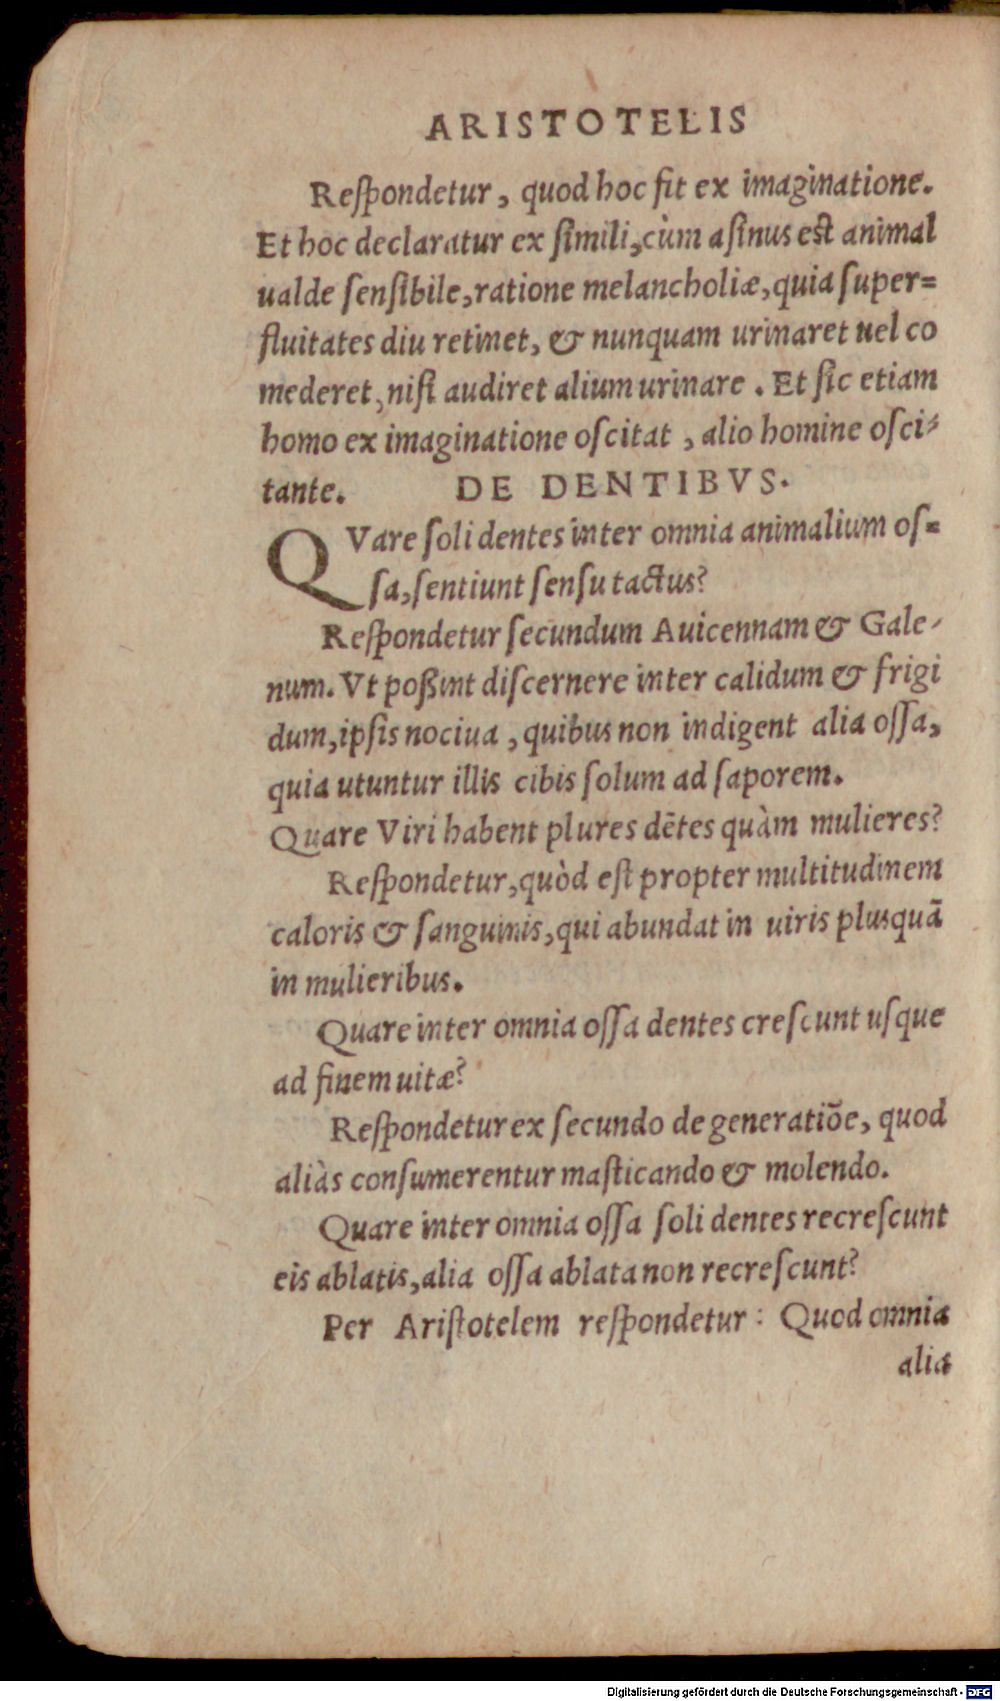 ARISTOTELIS
Reſpondetur, quod hoc fit ex imaginatione.
Et hoc declaratur ex ſimili, cùm aſinus eſt animal
ualde ſenſibile, ratione melancholiæ, quia ſuper=
fluitates diu retinet, & nunquam urinaret uel co
mederet, niſi audiret alium urinare. Et ſic etiam
homo ex imaginatione oſcitat, alio homine oſci-
tante. DE DENTIBVS.
QVare ſoli dentes inter omnia animalium oſ=
ſa, ſentiunt ſenſu tactus?
Reſpondetur ſecundum Auicennam & Gale-
num. Vt poßint diſcernere inter calidum & frigi
dum, ipſis nociua, quibus non indigent alia oſſa,
quia utuntur illis cibis ſolum ad ſaporem.
Quare Viri habent plures dētes quàm mulieres?
Reſpondetur, quòd eſt propter multitudinem
caloris & ſanguinis, qui abundat in uiris pluſquā
in mulieribus.
Quare inter omnia oſſa dentes creſcunt uſque
ad finem uitæ?
Reſpondetur ex ſecundo de generatiōe, quod
aliàs conſumerentur maſticando & molendo.
Quare inter omnia oſſa ſoli dentes recreſcunt
eis ablatis, alia oſſa ablata non recreſcunt?
Per Ariſtotelem reſpondetur: Quod omnia
alia
Digitalisierung gefördert durch die Deutsche Forschungsgemeinschaft - DFG